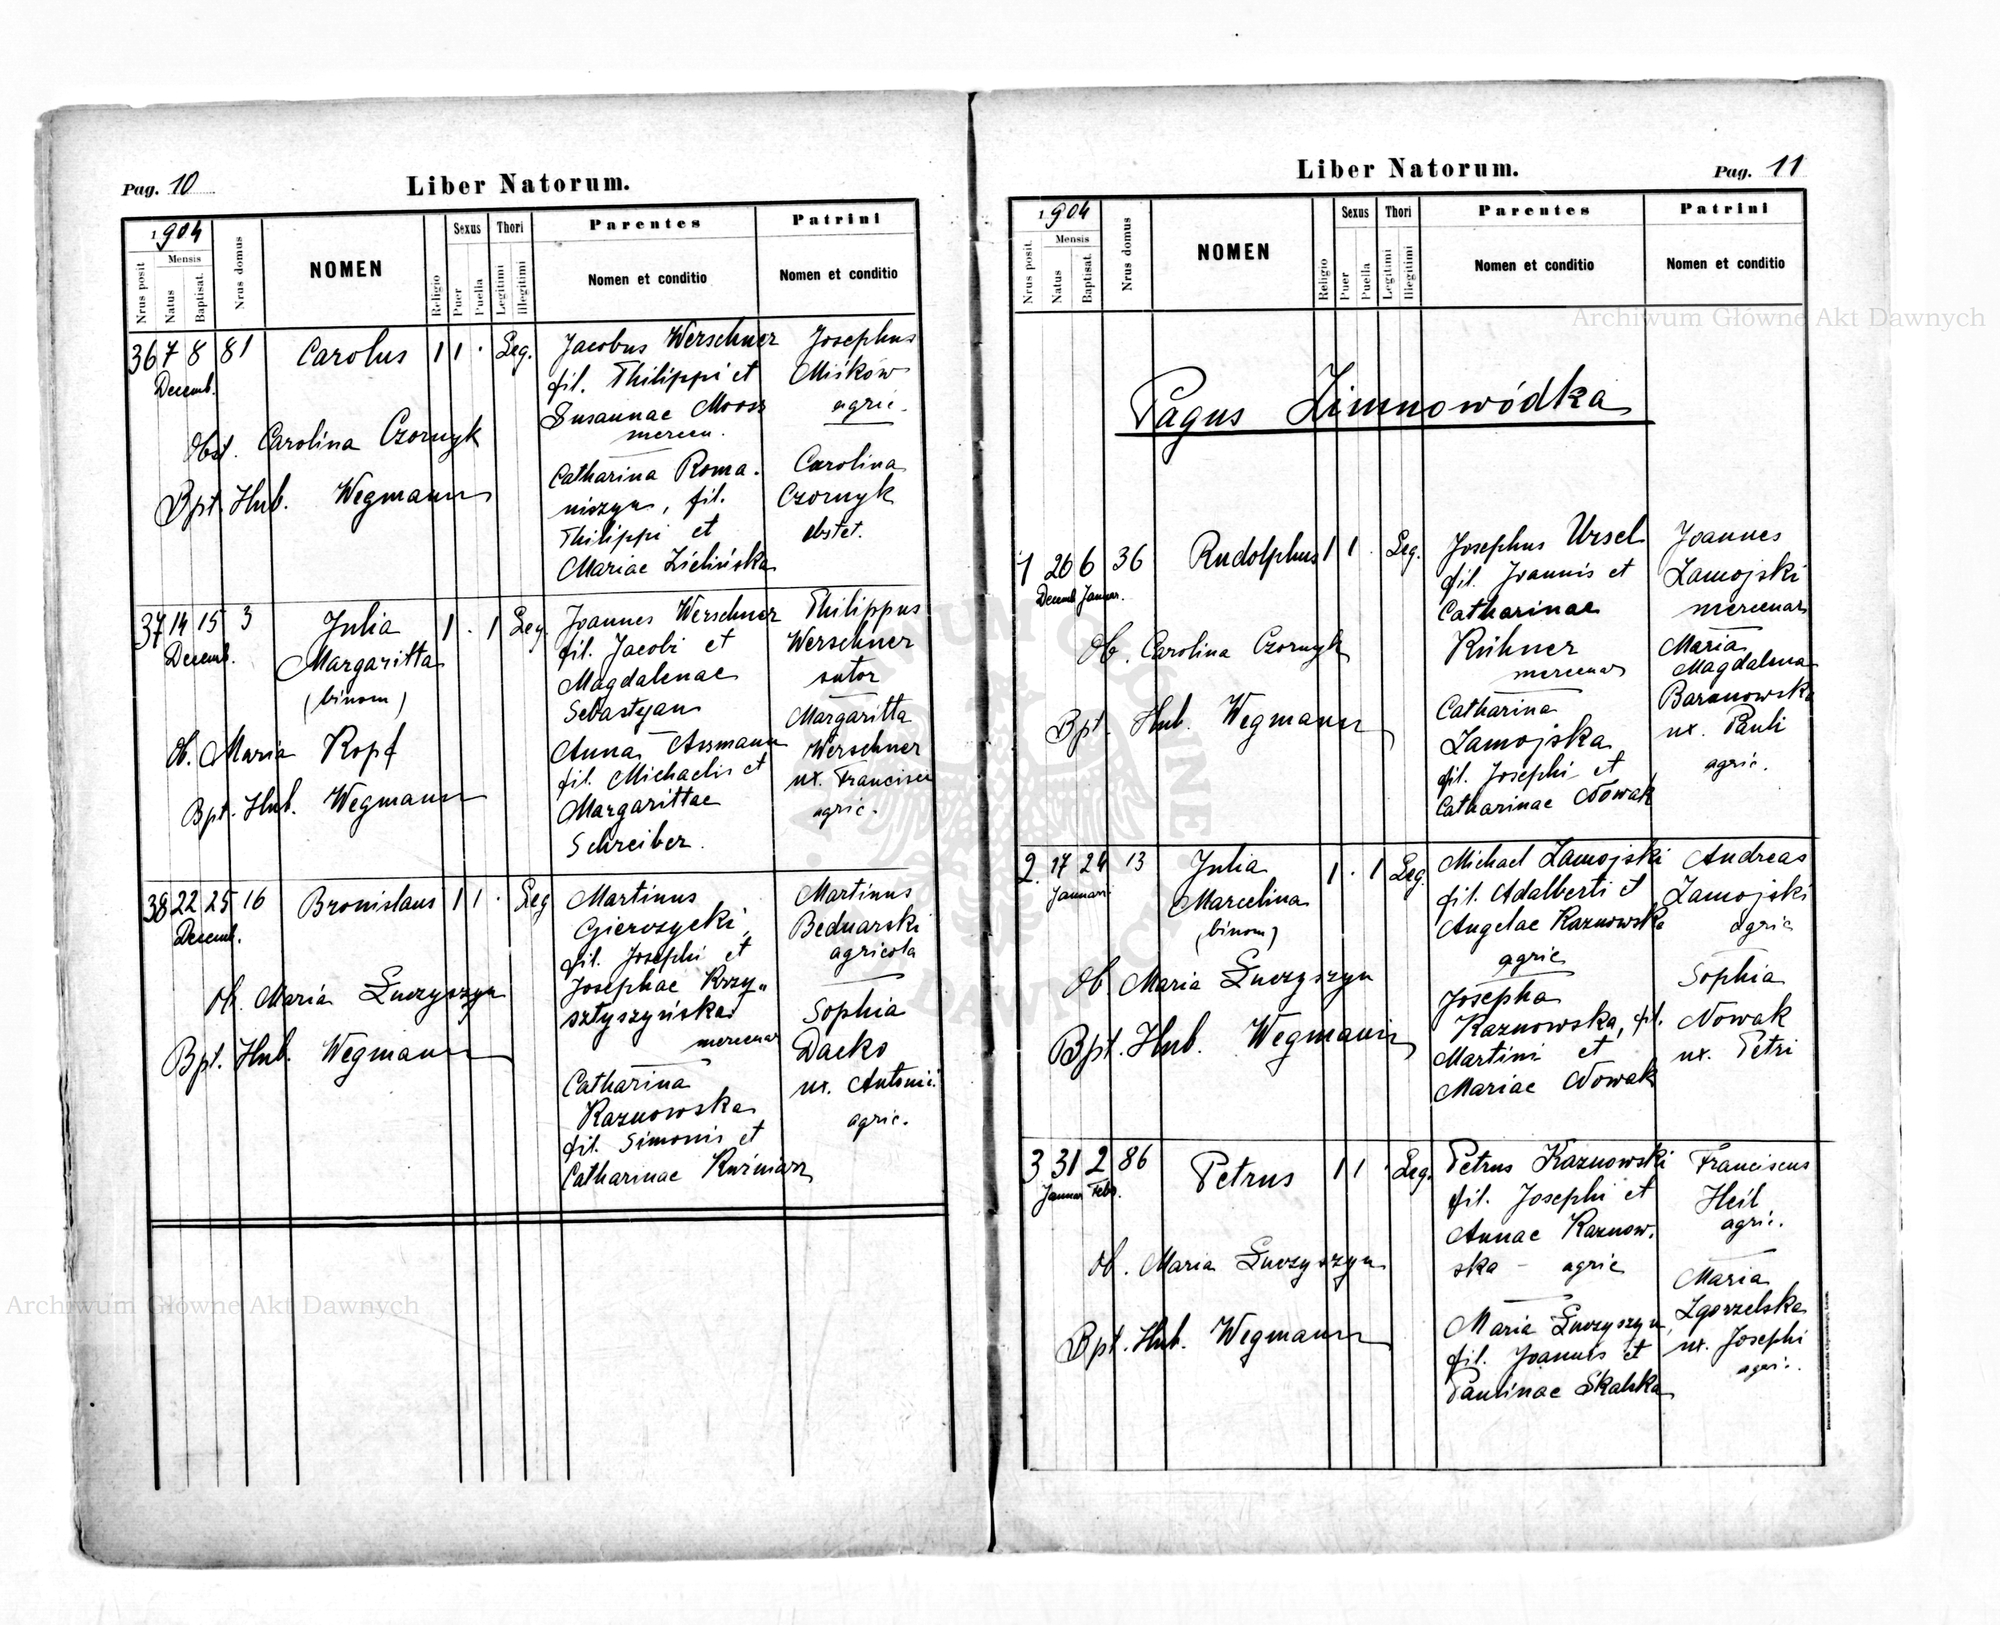 Pag. 10
Liber Natorum.
1904
Nrus posit
Mensis
Natus
Baptisat.
Nrus domus
NOMEN
Religio
Sexus
Puer
Puella
Thori
Legitimi
Illegitimi
Parentes
Nomen et conditio
Patrini
Nomen et conditio
36 7 8 81 Carolus 1 1 · Leg.
Decemb.
Obst. Carolina Czornyk
Bpt. Hub. Wegmann
Jacobus Werschner
fil. Philippi et
Susannae Mooss
mercen.
Catharina Roma-
niszyn, fil.
Philippi et
Mariae Zielińska
Josephus
Miśków
agric.
Carolina
Czornyk
obstet.
37 14 15 3 Julia 1 · 1 Leg
Decemb.
Margaritta
(binom)
Ob. Maria Kopf
Bpt. Hub. Wegmann
Joannes Werschner
fil. Jacobi et
Magdalenae
Sebastyan
Anna Assmann
fil. Michaelis et
Margarittae
Schreiber.
Philippus
Werschner
sutor
Margaritta
Werschner
ux. Francisci
agric.
38 22 25 16 Bronislaus 1 1 · Leg
Decemb.
Ob. Maria Łuczyszyn
Bpt. Hub. Wegmann
Martinus
Gierczycki,
fil. Josephi et
Josephae Krzy-
sztyszyńska
mercenar
Catharina
Kaznowska
fil. Simonis et
Catharinae Kuźniarz
Martinus
Bednarski
agricola
Sophia
Dacko
ux. Antonii
agric.
Liber Natorum.
Pag. 11
1904
Nrus posit.
Mensis
Natus
Baptisat.
Nrus domus
NOMEN
Religio
Sexus
Puer
Puella
Thori
Legitimi
Illegitimi
Parentes
Nomen et conditio
Patrini
Nomen et conditio
Pagus Zimnowódka
1 26 6 36 Rudolphus 1 1 · Leg.
Decemb Januar.
Ob. Carolina Czornyk
Bpt. Hub. Wegmann
Josephus Ursel
fil. Joannis et
Catharinae
Kühner
mercenar
Catharina
Zamojska
fil. Josephi et
Catharinae Nowak
Joannes
Zamojski
mercenar
Maria
Magdalena
Baranowska
ux. Pauli
agric.
2. 17 24 13 Julia 1 · 1 Leg.
Januari
Marcelina
(binom)
Ob. Maria Łuczyszyn
Bpt. Hub. Wegmann
Michael Zamojski
fil. Adalberti et
Angelae Kaznowska
agric
Josepha
Kaznowska, fil.
Martini et
Mariae Nowak
Andreas
Zamojski
agric
Sophia
Nowak
ux. Petri
3 31 2 86 Petrus 1 1 · Leg.
Januar Febr.
Ob. Maria Łuczyszyn
Bpt. Hub. Wegmann
Petrus Kaznowski
fil. Josephi et
Annae Kaznow-
ska – agric
Maria Łuczyszyn,
fil. Joannis et
Paulinae Skalska
Franciscus
Heil
agric.
Maria
Zgorzelska
ux. Josephi
agric.
Archiwum Główne Akt Dawnych
Archiwum Główne Akt Dawnych